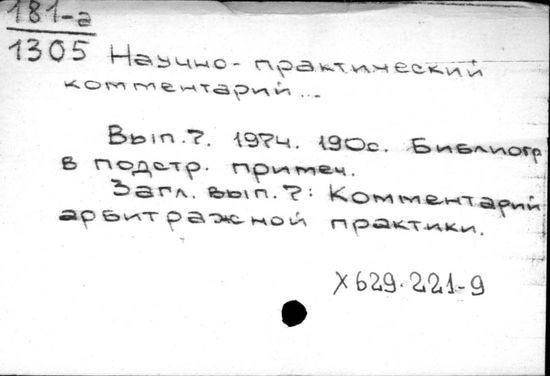 181-а
1305 Научно-практический
комментарий...
Вып.7. 1974. 190с. Библиогр
в подстр. примеч.
Загл. вып.7: Комментарий
арбитражной практики.
X629.221-9